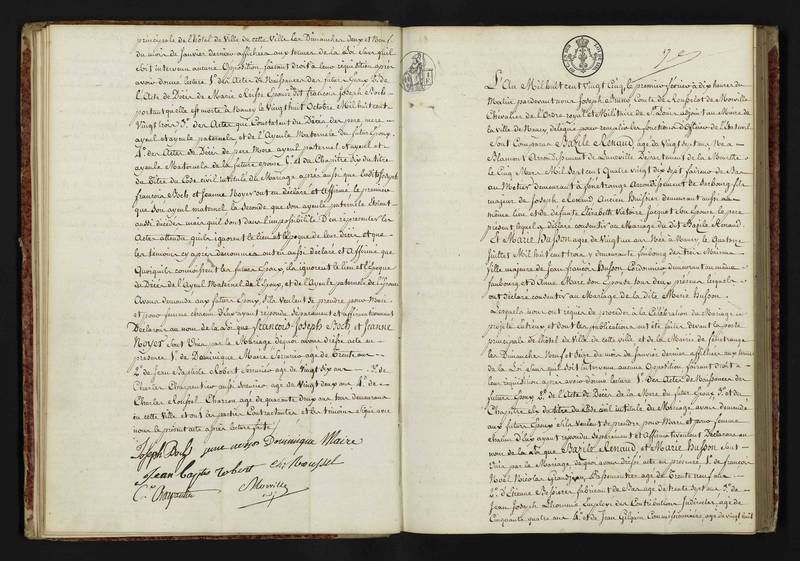 principale de l'hôtel de Ville de cette Ville les Dimanches deux et Neuf
du mois de Janvier dernier affichées aux termes de la Loi sans qu'il
soit intervenu aucune Opposition, faisant droit à leur réquisition après
avoir donné lecture 1° des Actes de Naissances des futurs Epoux 2° de
l'Acte de Décès de Marie Epouse dit François Joseph Boch
portant quelle est morte à Nancy le Vingt huit Octobre Mil huit cent
Vingt trois 3° des Actes que Constatent du Décès des pere, mere
ayeul et ayeule paternels et de l'Ayeule Maternelle du futur Epoux
4° des Actes de Décès de pere Mere ayeul paternel et ayeul et
ayeule Maternels de la future épouse 5° et du Chapitre six du titre
du Titre du Code civil intitulé du Mariage après aussi que lesdits Joseph
François Boch et Jeanne Noyer ont en déclaré et Affirmé le premier
que son ayeul maternel la seconde que son ayeule paternelle étaient
aussi décédés mais qu'ils sont dans l'impossibilité d'en représenter les
Actes attendu qu'ils ignorent le lieu et l'époque de leur décès et que
les témoins cy après dénommés ont en aussi déclaré et Affirmé que
Quoiqu'ils connoissent les futurs Epoux, ils ignorent le lieu et l'Epoque
du Décès de l'Ayeul Maternel de l'Epoux et de l'Ayeule paternelle de l'Epouse
Avons demandé aux futurs Epoux s'ils veulent se prendre pour Mari
et pour femme chacun d'eux ayant répondu séparément et affirmativement
Déclarons au nom de la Loi que François Joseph Boch et Jeanne
Noyer sont Unis par le Mariage de quoi avons dressé acte en
présence 1° de Dominique Maire Serrurier agé de trente ans
2° de Jean Baptiste Robert Serrurier agé de Vingt dix ans 3° de
Charles Charpentier aussi Serrurier agé de Vingt deux ans 4° de
Charles Roussel Charron agé de quarante deux ans tous demeurans
en cette Ville et ont les parties Contractantes et les témoins signé avec
nous le présent acte après lecture faite
Joseph Boch jeanne noyer Dominique Maire
Jean Baptiste robert ch. Roussel
C. Charpentier Morville
17 e
L'An Mil huit cent Vingt Cinq, le premier février à dix heures du
Matin pardevant nous Joseph Comte de Morville
Chevalier de l'Ordre royal et Militaire de St Louis adjoint au Maire de
la Ville de Nancy délégué pour remplir les fonctions d'Officier de l'état civil
Sont Comparus Bazile Renaud agé de Vingt sept ans Né à
Blamont Arrondissement de Lunéville Département de la Meurthe le
Cinq Mars Mil Sept cent Quatre vingt dix sept faiseur de Bas
au Métier demeurant à fénétrange Arrondissement de Sarbourg fils
majeur de Joseph Renaud Lucien Huissier demeurant au
même lieu et de défunte Elisabeth Victoire Jacquet son Epouse le pere
présent lequel a déclaré consentir au Mariage du dit Bazile Renaud.
Et Marie Husson agée de Vingt un ans Née à Nancy le Quatorze
Juillet Mil huit cent trois y demeurante faubourg des trois Maisons
fille majeure de Jean françois Husson Cordonnier demeurant au même
faubourg et Anne Marie son Epouse tous deux présens lesquels
ont déclaré consentir au Mariage de la dite Marie Husson.
Lesquels nous ont requis de procéder à la Célébration du Mariage
projetté entreux et dont les publications ont été faites devant la porte
principale de l'hôtel de Ville de cette ville et de la Mairie de fénétrange
les Dimanches Neuf et Seize du mois de Janvier dernier affichées aux termes
de la Loi sans qu'il soit intervenu aucune Opposition, faisant droit à
leur réquisition après avoir donné lecture 1° des Actes de Naissances des
futurs Epoux 2° de l'Acte de Décès de la Mere du futur Epoux 3° et du
Chapitre six du titre du Code civil intitulé du Mariage, avons demandé
aux futurs Epoux s'ils veulent se prendre pour Mari et pour femme
chacun d'eux ayant répondu séparément et Affirmativement Déclarons au
nom de la Loi que Bazile Renaud, et Marie Husson sont
Unis par le Mariage de quoi avons dressé acte en présence 1° de françois
Noël Nicolas Grandjean Passementier agé de trente neuf ans
2° d'Etienne Bessierer fabricant de Bas agé de trente sept ans 3° de
Jean Joseph Employé des Contributions Indirectes agé de
Cinquante quatre ans 4° et de Jean Gilquin Commissionnaire, agé de vingt huit